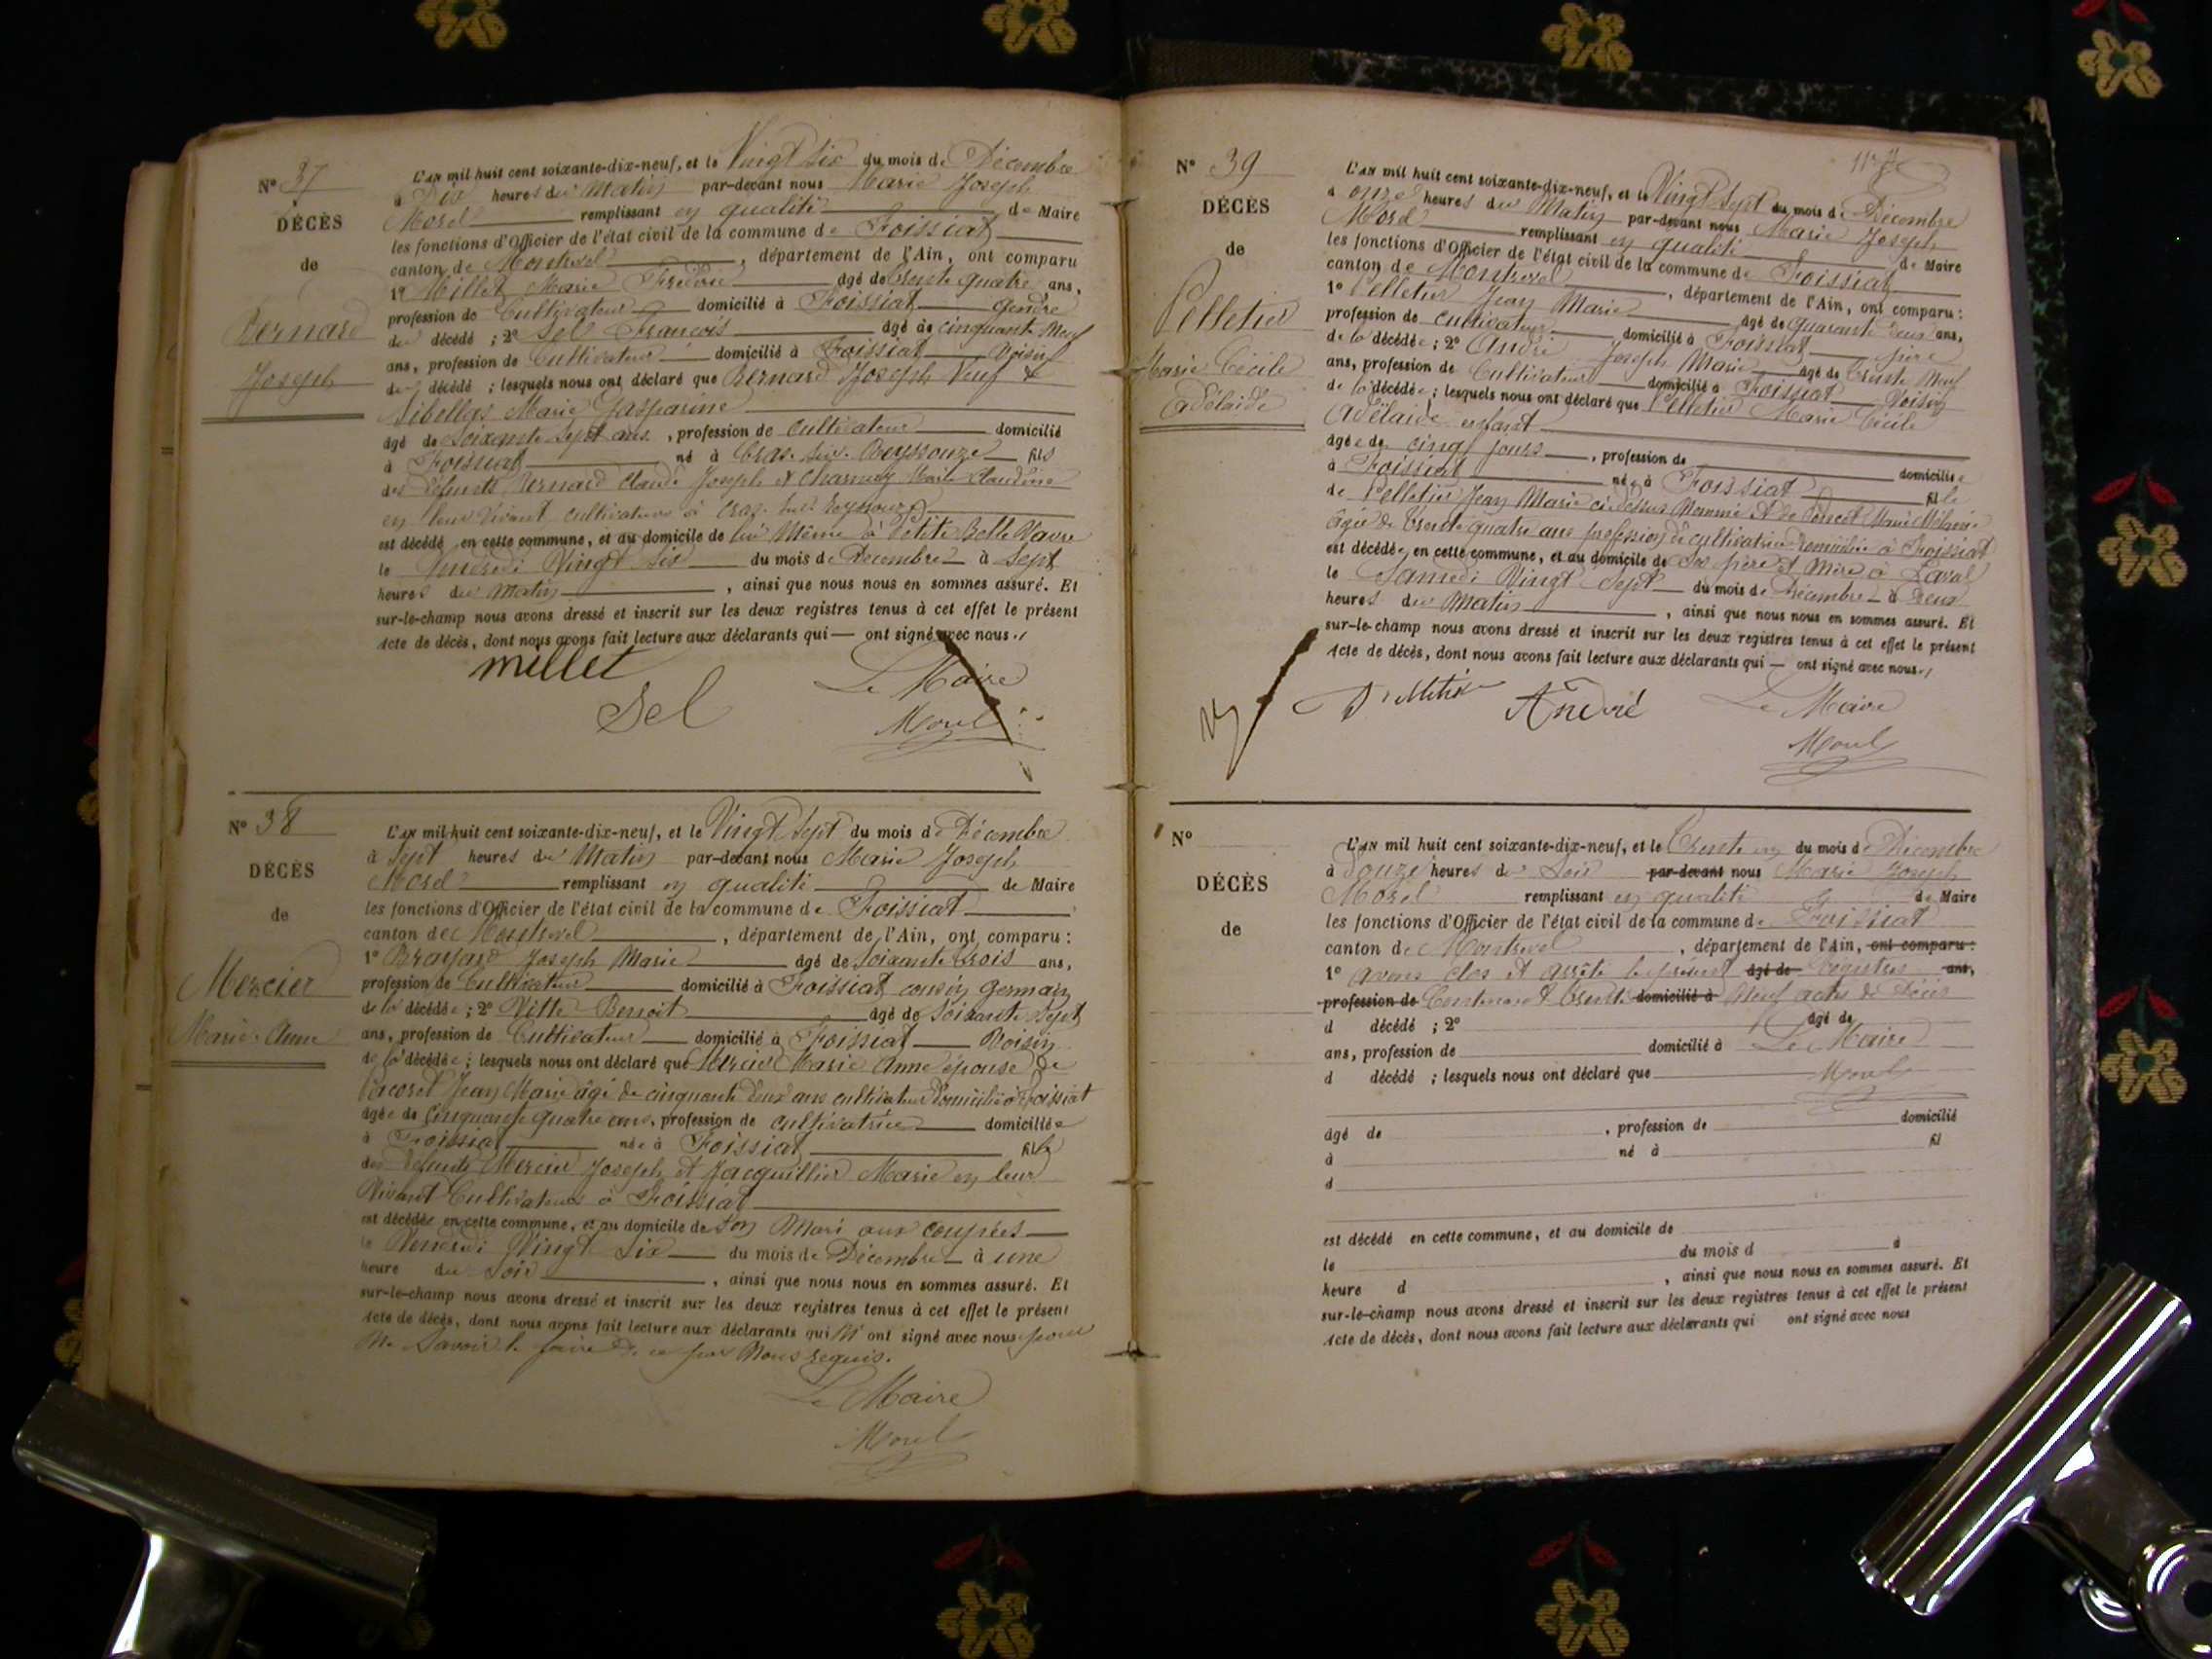 N° 37
DÉCÈS
de
Bernard
Joseph
L'AN mil huit cent soixante-dix-neuf, et le Vingt Six du mois de Décembre
à Dix heures du Matin par-devant nous Marie Joseph
Morel remplissant en qualité de Maire
les fonctions d'Officier de l'état civil de la commune de Foissiat
canton de Montrevel, département de l'Ain, ont comparu
1° Millet Marie Frédéric âgé de trente quatre ans,
profession de Cultivateur domicilié à Foissiat gendre
du décédé ; 2° Sel François âgé de cinquante Neuf
ans, profession de Cultivateur domicilié à Foissiat Voisin
du décédé ; lesquels nous ont déclaré que Bernard Joseph Veuf de
Marie Gasparine
âgé de Soixante Sept ans, profession de Cultivateur domicilié
à Foissiat né à Cras-sur-Reyssouze fils
des défunts Bernard Claude Joseph et Charnay Marie Claudine
en leur vivant cultivateurs à Cras sur Reyssouze
est décédé en cette commune, et au domicile de lui Même à Petite Belle
le Vendredi Vingt Six du mois de Décembre à Sept
heures du Matin, ainsi que nous nous en sommes assuré. Et
sur-le-champ nous avons dressé et inscrit sur les deux registres tenus à cet effet le présent
Acte de décès, dont nous avons fait lecture aux déclarants qui — ont signé avec nous.
millet
Sel
Le Maire
Morel
N° 38
DÉCÈS
de
Mercier
Marie-Anne
L'AN mil huit cent soixante-dix-neuf, et le Vingt Sept du mois de Décembre
à Sept heures du Matin par-devant nous Marie Joseph
Morel remplissant en qualité de Maire
les fonctions d'Officier de l'état civil de la commune de Foissiat
canton de Montrevel, département de l'Ain, ont comparu :
1° Brayard Joseph Marie âgé de Soixante trois ans,
profession de Cultivateur domicilié à Foissiat cousin germain
de la décédée ; 2° Vitte Benoit âgé de Soixante Sept
ans, profession de Cultivateur domicilié à Foissiat Voisin
de la décédée ; lesquels nous ont déclaré que Mercier Marie Anne épouse de
Jean Marie âgé de cinquante deux ans cultivateur domicilié à Foissiat
âgée de Cinquante quatre ans, profession de cultivatrice domiciliée
à Foissiat née à Foissiat fille
des défunts Mercier Joseph et Jacquillier Marie en leur
Vivant Cultivateurs à Foissiat
est décédée en cette commune, et au domicile de Son Mari aux
le Vendredi Vingt Six du mois de Décembre à une
heure du Soir, ainsi que nous nous en sommes assuré. Et
sur-le-champ nous avons dressé et inscrit sur les deux registres tenus à cet effet le présent
Acte de décès, dont nous avons fait lecture aux déclarants qui N' ont signé avec nous pour
Ne Savoir le faire de ce par Nous requis.
Le Maire
Morel
117
N° 39
DÉCÈS
de
Pelletier
Marie Cécile
Adélaïde
L'AN mil huit cent soixante-dix-neuf, et le Vingt Sept du mois de Décembre
à onze heures du Matin par-devant nous Marie Joseph
Morel remplissant en qualité de Maire
les fonctions d'Officier de l'état civil de la commune de Foissiat
canton de Montrevel, département de l'Ain, ont comparu :
1° Pelletier Jean Marie âgé de Quarante deux ans,
profession de cultivateur domicilié à Foissiat père
de la décédée ; 2° André Joseph Marie âgé de trente Neuf
ans, profession de Cultivateur domicilié à Foissiat Voisin
de la décédée ; lesquels nous ont déclaré que Pelletier Marie Cécile
Adélaïde enfant
âgée de cinq jours, profession de domiciliée
à Foissiat née à Foissiat fille
de Pelletier Jean Marie ci-dessus Nommé et de Poncet Marie
âgée de trente quatre ans profession de cultivatrice domiciliée à Foissiat
est décédée en cette commune, et au domicile de Ses père et Mère à Laval
le Samedi Vingt Sept du mois de Décembre à Deux
heures du Matin, ainsi que nous nous en sommes assuré. Et
sur-le-champ nous avons dressé et inscrit sur les deux registres tenus à cet effet le présent
Acte de décès, dont nous avons fait lecture aux déclarants qui — ont signé avec nous.
André
Le Maire
Morel
N°
DÉCÈS
de
L'AN mil huit cent soixante-dix-neuf, et le Trente un du mois de Décembre
à Douze heures du Soir par-devant nous Marie Joseph
Morel remplissant en qualité de Maire
les fonctions d'Officier de l'état civil de la commune de Foissiat
canton de Montrevel, département de l'Ain, ont comparu :
1° avons clos et arrêté le présent âgé de Registre ans,
profession de Contenant trente domicilié à Neuf actes de Décès
d décédé ; 2° âgé de
Le Maire
ans, profession de domicilié à
d décédé ; lesquels nous ont déclaré que
Morel
âgé de , profession de domicilié
à né à fil
d
est décédé en cette commune, et au domicile de
le du mois d à
heure d , ainsi que nous nous en sommes assuré. Et
sur-le-champ nous avons dressé et inscrit sur les deux registres tenus à cet effet le présent
Acte de décès, dont nous avons fait lecture aux déclarants qui ont signé avec nous